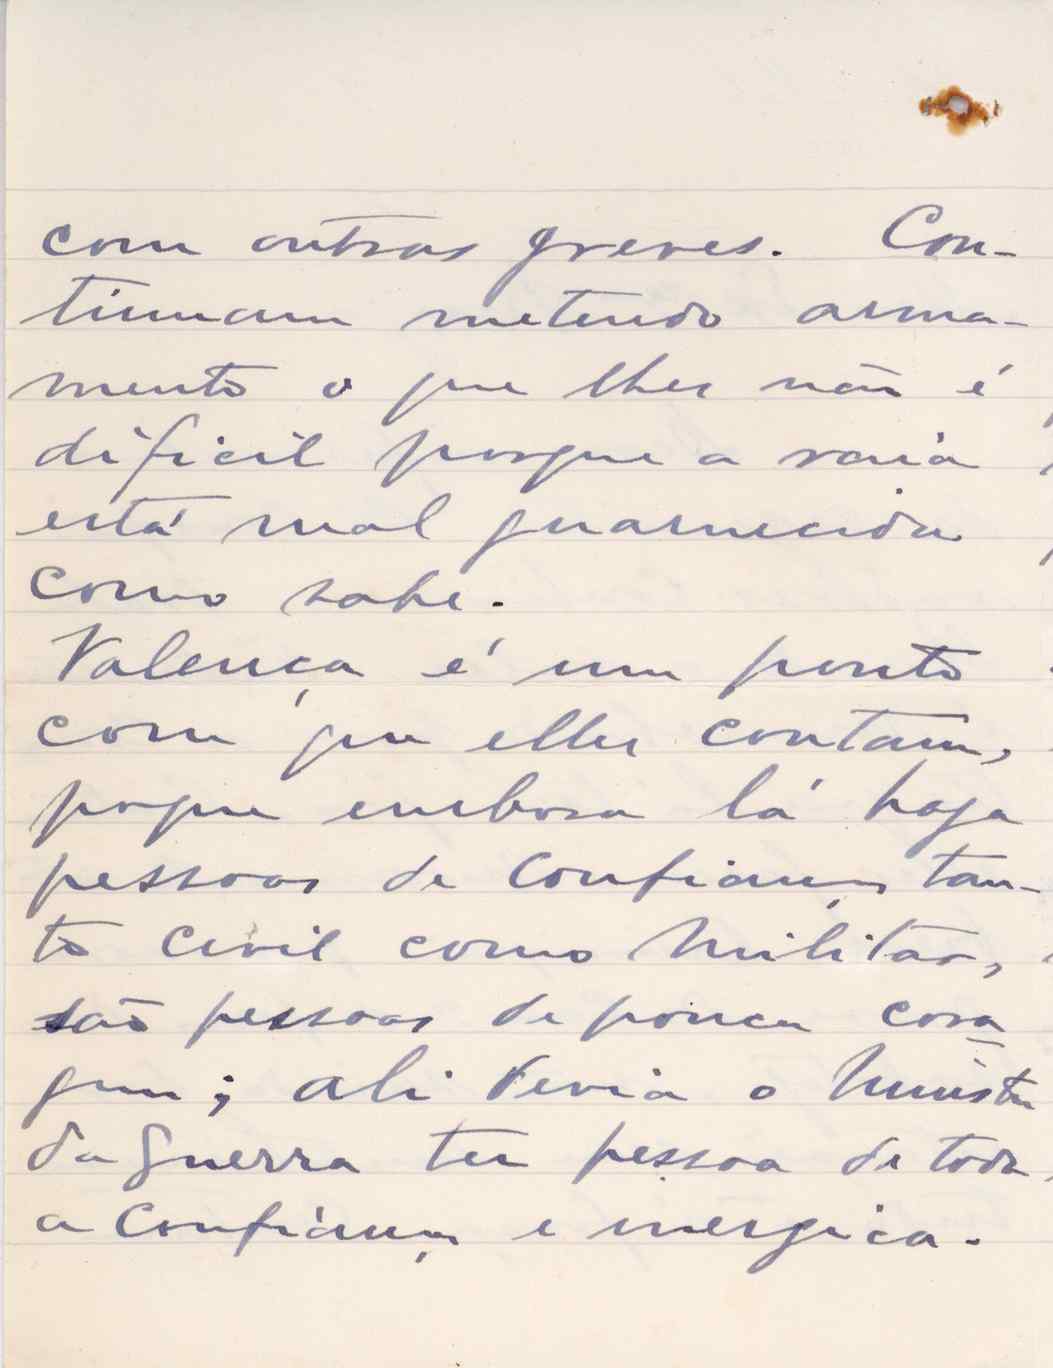 com outras greves. Con-
tinuam metendo arma-
mento o que lhes não é
dificil porque a raia
está mal guarnecida
como sabe.
Valença é um ponto
com que elles contam,
porque embora lá haja
pessoas de confiança tan-
to civil como militar,
são pessoas de pouca cora
gem; ali devia o Ministro
da Guerra ter pessoa de toda
a confiança e energica.